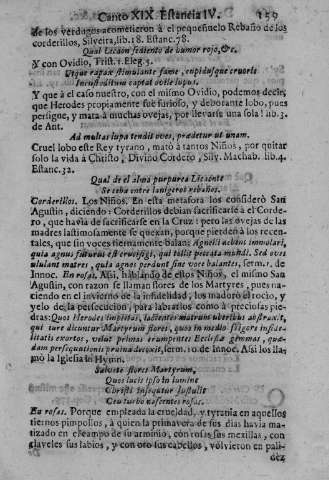 Canto XIX. Estancia IV. 159
de los verdugos acometieron à el pequeñuelo Rebaño de los
corderillos, Silveira, lib. 18. Estanc. 78.
Qual Leona sediento de humor roxo, &c.
Y con Ovidio, Trist. 1. Eleg. 5.
Utque rapax stimulante fame, cupidusque cruoris
Incustoditum captat ovile lupus.
Y que à el caso nuestro, con el mismo Ovidio, podemos decir,
que Herodes propiamente fue furioso, y deborante lobo, pues
persigue, y mata à muchas ovejas, por llevarse una sola! lib. 3.
de Ant.
Ad multas lupa tendit oves, prædetur ut unam.
Cruel lobo este Rey tyrano, matò à tantos Niños, por quitar
solo la vida à Christo, Divino Cordero, Sily. Machab. lib. 4.
Estanc. 32.
Qual de el alma purpurea
Se ceba entre lanigeros rebaños.
Corderillos. Los Niños. En esta metafora los considerò San
Agustin, diciendo: Corderillos debian sacrificarse à el Corde-
ro, que havia de sacrificarse en la Cruz: pero las ovejas de las
madres lastimosamente se quexan, porque pierden à los recen-
tales, que sin voces tiernamente balan: Agnelli debent immolari,
quia agnus futurus est crucifigi, qui tollit peccata mundi. Sed oves
ululant matres, quia agnos perdunt sine voce balantes, serm. 1. de
Innoc. En rosas. Assi, hablando de ellos Niños, el mismo San
Agustin, con razon se llaman flores de los Martyres, pues na-
ciendo en el invierno de la infidelidad, los madurò el rocio, y
yelo de la persecucion, para labrarlos como à preciosas pie-
dras: Quos Herodis impietas, lactentes matrum uberibus abstraxit,
qui iure dicuntur Martyrum flores, quos in medio frigore infide-
litatis exortos, velut primas erumpentes Ecclesiæ gemmas, quæ-
dam persequutionis pruina decoxit, serm. 10. de Innoc. Assi los lla-
mò la Iglesia in Hymn.
Salvete flores Martyrum,
Quos lucis ipso in limine
Christi insequutor sustulit
Ceu turbo nascentes rosas.
En rosas. Porque empleada la crueldad, y tyrania en aquellos
tiernos pimpollos, à quien la primavera de sus dias havia ma-
tizado en campo de su arminio, con rosas sus mexillas, con
claveles sus labios, y con oro sus cabellos, volvieron en pali-
dez